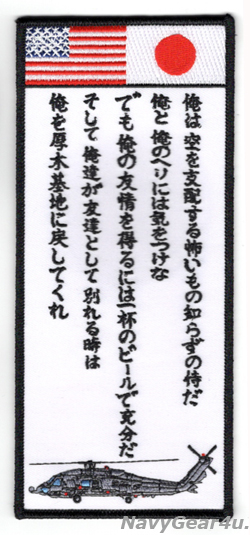 俺は空を支配する怖いもの知らずの侍だ
俺と俺のヘリには気をつけな
でも俺の友情を得るには一杯のビールで充分だ
そして俺達が友達として別れる時は
俺を厚木基地に戻してくれ
NavyGear4u.